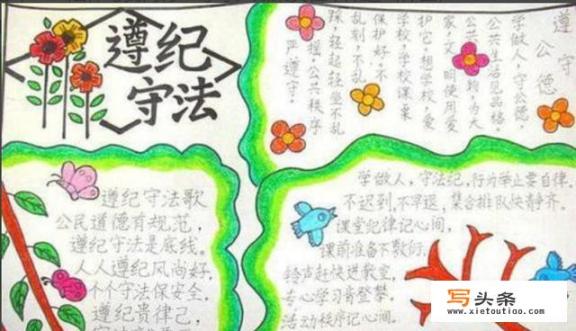 遵纪
守法
遵守
公德
学做人,守公德,
公共生活见品格。
公共财物,为大
家,文明使用爱
护它。想学校,爱
学校,学校课桌
保护好。不
乱刻,不乱
踩,轻起轻坐不乱
摇。公共秩序
严遵守。
遵纪守法歌
公民道德有规范,
遵纪守法是底线。
人人遵纪风尚好,
个个守法保安全。
遵纪贵律己,
学做人,守法纪,行为举止要自律。
不迟到,不早退,集合排队快静齐。
课堂纪律记心间,
课前准备不敷衍。
铃声赶快进教室,
专心学习青登攀。
活动秩序记心间。
写头条
xietoutiao.com